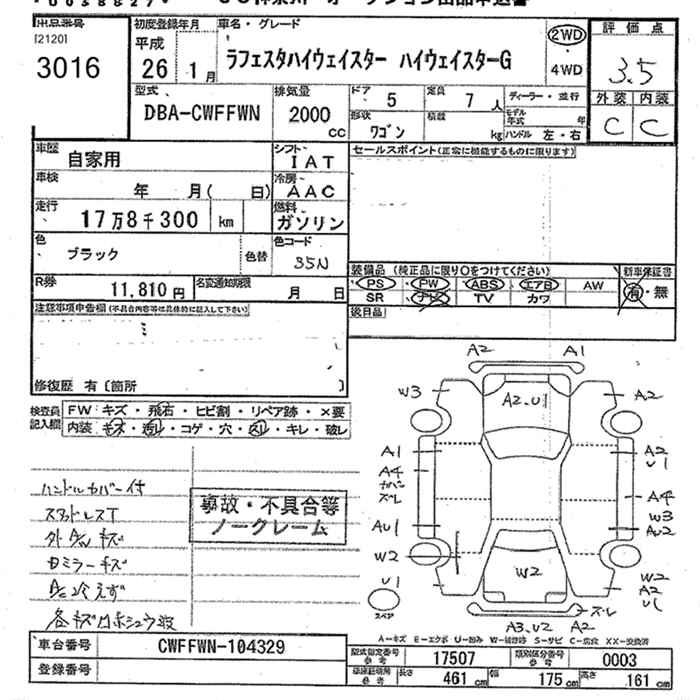 出品番号
[2120]
3016
初度登録年月
平成
26 1月
車名・グレード
ラフェスタハイウェイスター ハイウェイスターG
2WD
・
4WD
評価点
3.5
外装 内装
C C
型式
DBA-CWFFWN
排気量
2000
cc
ドア 5
定員 7人
ディーラー・並行
形状
ワゴン
積載 kg
モデル年式 年
ハンドル 左・右
車歴
自家用
シフト
IAT
セールスポイント(正常に機能するものに限ります)
車検
年 月( 日)
冷房
AAC
走行
17万8千300 km
燃料
ガソリン
色
ブラック
色替
色コード
35N
R券
11,810円
名変通知期限
月 日
装備品 (純正品に限り○をつけてください)
新車保証書
PS PW ABS エアB AW
SR ナビ TV カワ
有・無
後日品
注意事項申告欄(不具合内容等は具体的に記入して下さい)
修復歴 有〔箇所 〕
検査員
記入欄
FW キズ・飛石・ヒビ割・リペア跡・×要
内装 キズ・汚レ・コゲ・穴・スレ・キレ・破レ
ハンドルカバー付
スタッドレスT
外キズ
ミラーキズ
事故・不具合等
ノークレーム
A2 A1
W3 A2,U1 A2
A1 A2
U1
A4
カバー
ズレ
A4
W3
AU1 AU2
W2 W2
U1
スペア
W2
A2
U1
ズレ
A3,U2 A2
A-キズ E-エクボ U-凹み W-補修跡 S-サビ C-腐食 XX-交換済
車台番号
CWFFWN-104329
登録番号
型式指定番号
参考
17507
類別区分番号
参考
0003
長さ 461cm 幅 175cm 高さ 161cm